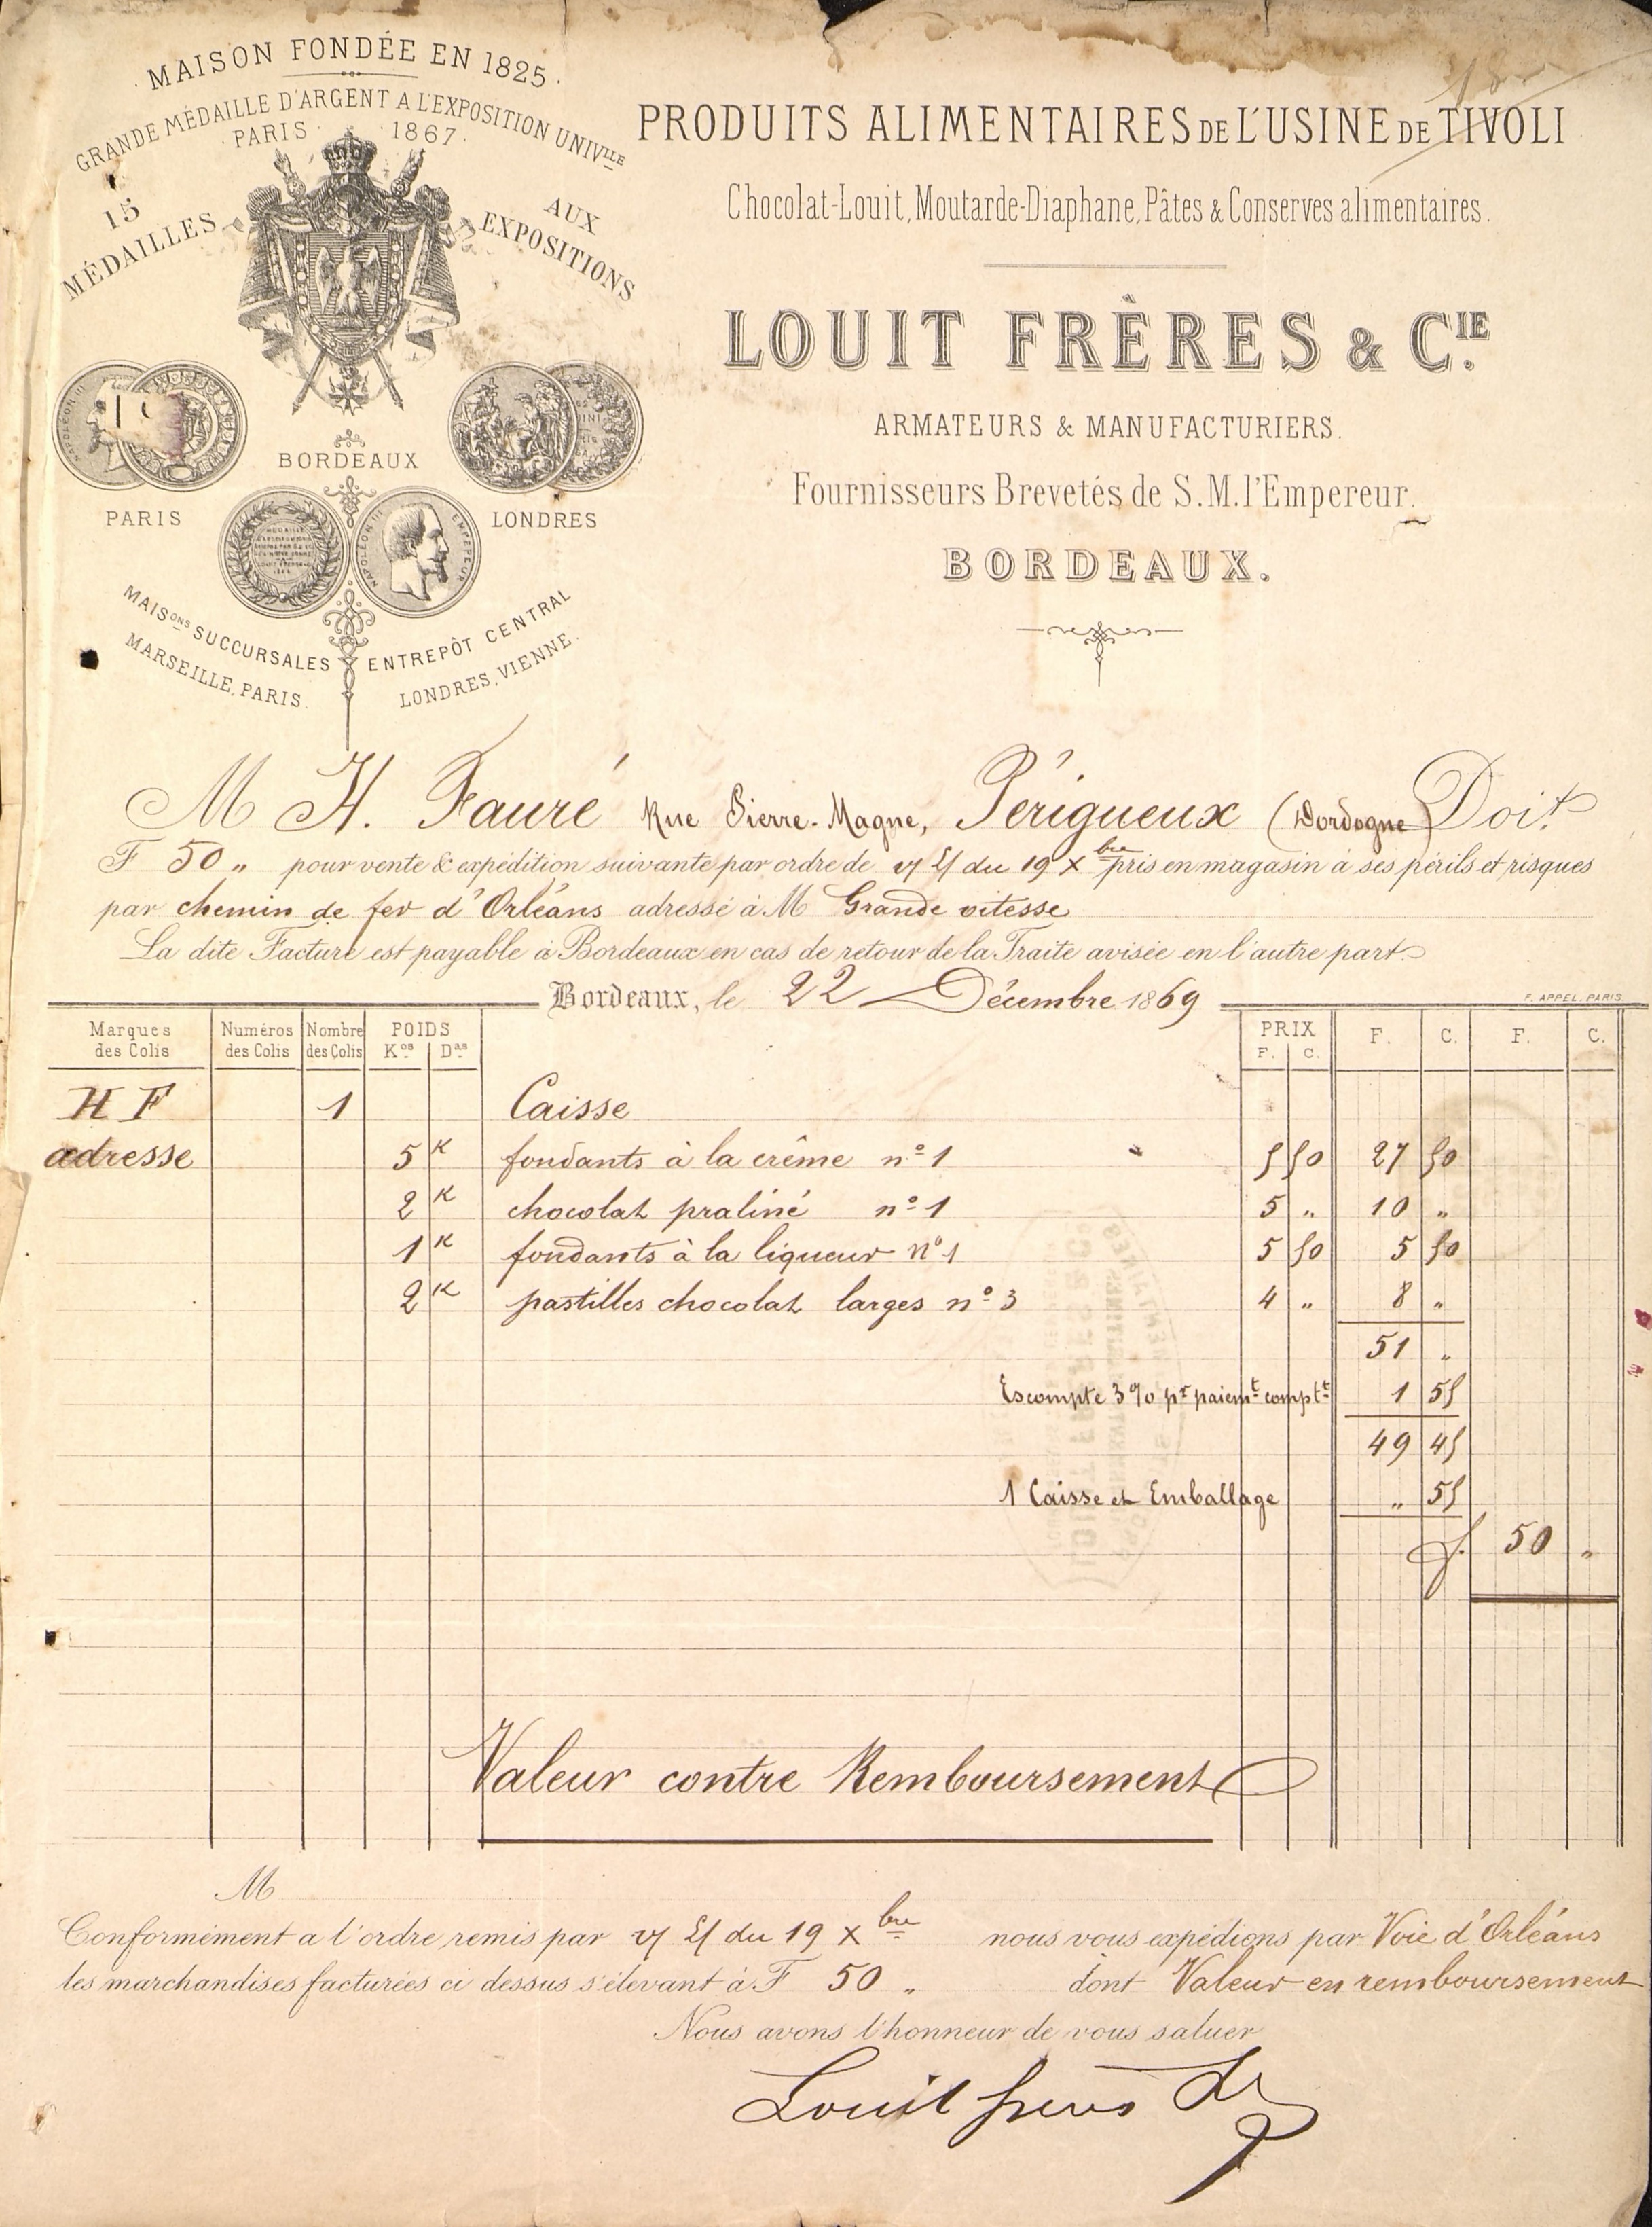 MAISON FONDÉE EN 1825.
GRANDE MÉDAILLE D'ARGENT A L'EXPOSITION UNIVLLE
PARIS 1867.
15 MÉDAILLES
AUX EXPOSITIONS
NAPOLEON III
BORDEAUX
PARIS
LONDRES
NAPOLEON III EMPEREUR
MAISONS SUCCURSALES
MARSEILLE, PARIS.
ENTREPÔT CENTRAL
LONDRES, VIENNE.
PRODUITS ALIMENTAIRES DE L'USINE DE TIVOLI
Chocolat-Louit, Moutarde-Diaphane, Pâtes & Conserves alimentaires.
LOUIT FRÈRES & CIE.
ARMATEURS & MANUFACTURIERS.
Fournisseurs Brevetés de S.M. l'Empereur.
BORDEAUX.
M H. Fauré Rue Pierre-Magne, Périgueux (Dordogne) Doit
F 50 „ pour vente & expédition suivante par ordre de du 19 Xbre pris en magasin à ses périls et risques
par chemin de fer d'Orléans adressé à M Grande vitesse
La dite Facture est payable à Bordeaux en cas de retour de la Traite avisée en l'autre part.
Bordeaux, le 22 Décembre 1869
F. APPEL. PARIS
Marques des Colis Numéros des Colis Nombre des Colis POIDS Kos Das PRIX F. C. F. C. F. C.
H F 1 Caisse
adresse 5 K fondants à la crême no 1 5 50 27 50
2 K chocolat praliné no 1 5 „ 10 „
1 K fondants à la liqueur no 1 5 50 5 50
2 K pastilles chocolat larges no 3 4 „ 8 „
51 „
Escompte 3% pr paiemt comptt 1 55
49 45
1 Caisse et Emballage „ 55
f. 50 „
Valeur contre Remboursement
M
Conformément a l'ordre remis par du 19 Xbre nous vous expédions par Voie d'Orléans
les marchandises facturées ci dessus s'élevant à F 50 „ dont Valeur en remboursement
Nous avons l'honneur de vous saluer
Louit freres